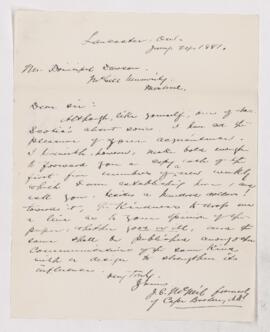 Lancaster, Ont.
Jany 24, 1881.
Mr. Principal Dawson
McGill University,
Montreal
Dear Sir:
Although, like yourself, one of
Scotia's sons I have not the
pleasure of your acquaintance.
I herewith, however, make bold enough
to forward you a copy each of the
first numbers of a new weekly
which I am establishing here. I may
tell you,
towards it, kindness to drop me
a line as to your opinion of the
paper, whether good or ill, and the
same shall be published among other
Communications of the same kind
with a design to strengthen its
influence.
Very truly,
Yours
J. C. McNeil formerly
of Cape Breton, N.S.